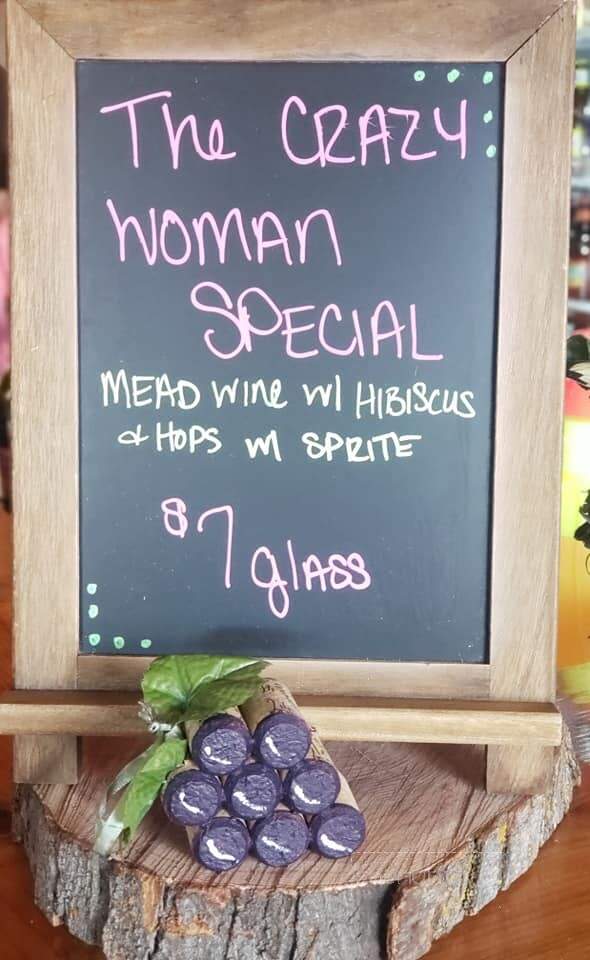 The CRAZY
WOMAN
SPECIAL
MEAD WINE W/ HIBISCUS
& HOPS W/ SPRITE
$7 glass